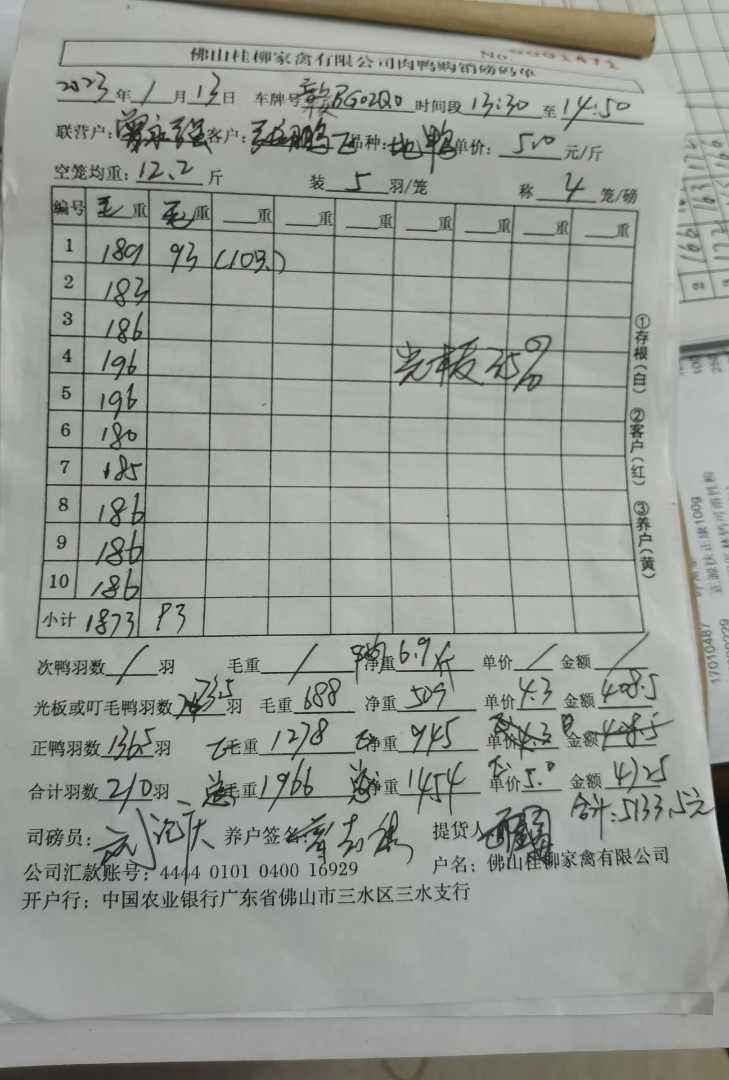 佛山桂柳家禽有限公司肉鸭购销磅码单 No 0001471
2023年1月13日 车牌号 赣BG02Q0 时间段 13:30 至 14:50
联营户: 客户: 品种: 地鸭 单价: 5.0 元/斤
空笼均重: 12.2 斤 装 5 羽/笼 称 4 笼/磅
编号 毛重 毛重 重 重 重 重 重 重 重
1 189 93 (10只)
2 183
3 186
4 196 光板35%
5 196
6 180
7 185
8 186
9 186
10 186
小计 1873 93
①存根(白) ②客户(红) ③养户(黄)
次鸭羽数 / 羽 毛重 / 净重 6.9斤 单价 / 金额 /
光板或叮毛鸭羽数 73.5 羽 毛重 688 净重 509 单价 4.3 金额 408.5
正鸭羽数 136.5 羽 正毛重 1278 正净重 945 单价 4.3 金额 408.5
合计羽数 210 羽 总毛重 1966 总净重 1454 正单价 5.0 金额 4725
合计:5133.5元
司磅员: 养户签名: 提货人
公司汇款账号: 4444 0101 0400 16929 户名: 佛山桂柳家禽有限公司
开户行: 中国农业银行广东省佛山市三水区三水支行
正源扶正康100g
17010487